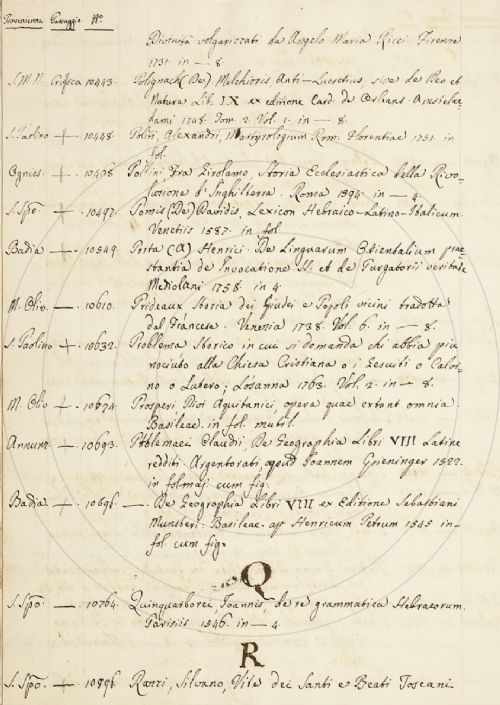 Provenienza Passaggio N.º
Divinità volgarizzati da Angelo Maria Ricci. Firenze
1731. in — 8.
S. M. N. Crusca 10443. Polignach (De) Melchioris Anti-Lucretius sive de Deo et
Natura Lib. IX. ex editione Card. de Orleans. Amstelae
dami 1748. Tom. 2. Vol. 1. in — 8.
S. Paolino + 10448. Politi, Alexandri, Martyrologium Rom. Florentiae 1751. in
fol.
Ogniss. — 10458. Pollini Fra Girolamo, Storia Ecclesiastica della Rivo-
luzione d'Inghilterra. Roma 1594. in — 4.
S. Spō. + 10497. Pomis (De) Davidis, Lexicon Hebraico-Latino-Italicum
Venetiis 1587. in fol.
Badia + 10549. Porta (A) Henrici. De Linguarum Orientalium prae-
stantia de Invocatione SS. et de Purgatorii veritate
Mediolani 1758. in 4.
M. Oliv. — 10610. Prideaux Storia dei Giudei e Popoli vicini tradotta
dal Francese. Venezia 1738. Vol. 6. in — 8.
S. Paolino + 10632. Problema Storico in cui si domanda chi abbia più
nociuto alla Chiesa Cristiana o i Gesuiti o Calvi-
no o Lutero; Losanna 1763. Vol. 2. in — 8.
M. Oliv. + 10674. Prosperi Divi Aquitanici, opera quae extant omnia.
Basileae. in fol. mutil.
Annunz. — 10693. Ptolemaei Claudii, De Geographia Libri VIII Latine
redditi. Argentorati, apud Joannem Grieninger 1522.
in fol. maj. cum fig.
Badia + 10696. —. De Geographia Libri VIII ex Editione Sebastiani
Munsteri: Basileae. ap. Henricum Petrum 1545 in-
fol. cum fig.
Q
S. Spō. — 10764. Quinquarborei, Joannis, de re grammatica Hebraeorum.
Parisiis 1546. in — 4.
R
S. Spō. + 10896. Razzi, Silvano, Vite dei Santi e Beati Toscani